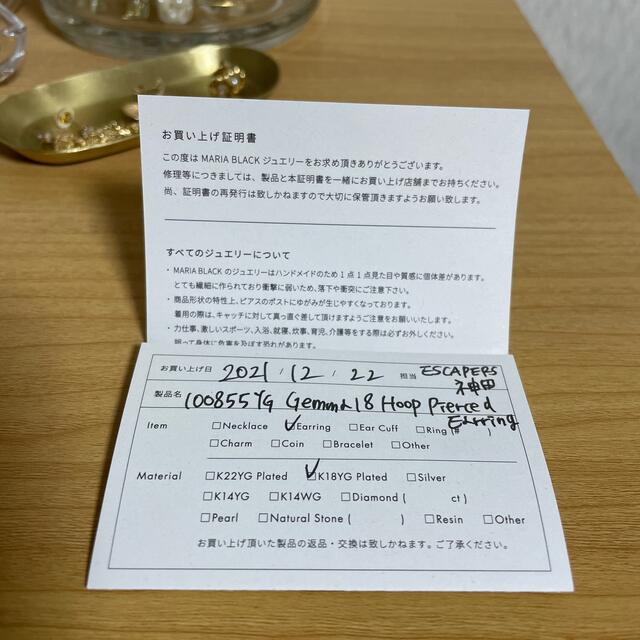 お買い上げ証明書
この度は MARIA BLACK ジュエリーをお求め頂きありがとうございます。
修理等につきましては、製品と本証明書を一緒にお買い上げ店舗までお持ちください。
尚、証明書の再発行は致しかねますので大切に保管頂きますようお願い致します。
すべてのジュエリーについて
・MARIA BLACK のジュエリーはハンドメイドのため 1 点 1 点見た目や質感に個体差があります。
とても繊細に作られており衝撃に弱いため、落下や衝突にご注意下さい。
・商品形状の特性上、ピアスのポストにゆがみが生じやすくなっております。
着用の際は、キャッチに対して真っ直ぐ差して頂けますようご注意をお願いいたします。
・力仕事、激しいスポーツ、入浴、就寝、炊事、育児、介護等をする際は必ずお外しください。
誤って身体に危害を及ぼす恐れがあります。
お買い上げ日 2021 / 12 / 22 担当 ESCAPERS 神田
製品名 100855YG Gemma 18 Hoop Pierced Earring
Item □Necklace ☑Earring □Ear Cuff □Ring (# )
□Charm □Coin □Bracelet □Other
Material □K22YG Plated ☑K18YG Plated □Silver
□K14YG □K14WG □Diamond ( ct )
□Pearl □Natural Stone ( ) □Resin □Other
お買い上げ頂いた製品の返品・交換は致しかねます。ご了承ください。